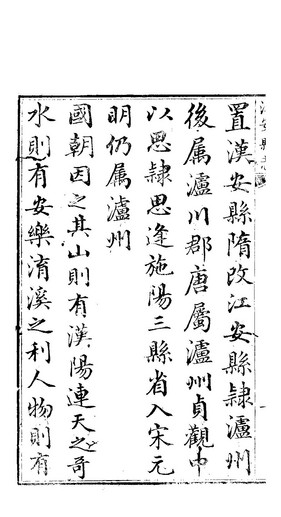 置漢安縣隋改江安縣隸瀘州
後属瀘川郡唐屬瀘州貞觀中
以思隸思逢施陽三縣省入宋元
明仍属瀘州
國朝因之其山則有漢陽連天之奇
水則有安樂淯溪之利人物則有